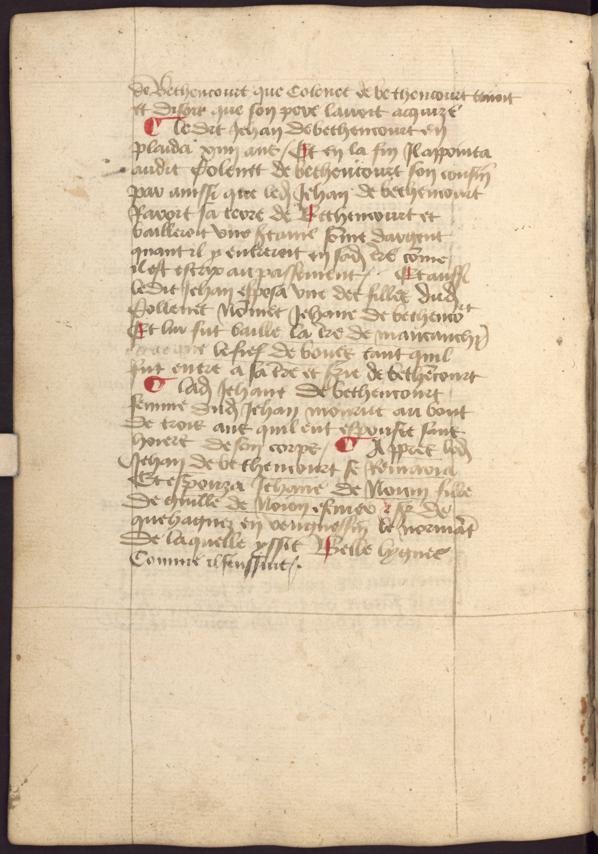 de Bethencourt que Colenet de bethencourt tenoit
et disoit que son pere lavoit acquize
¶ Ledit Jehan de bethencourt en
plaida xiiii ans / Et en la fin Il appointa
audit Colenet de bethencourt son cousin
par ainssi que led Jehan de bethencourt
Raroit sa terre de Bethencourt et
bailleroit une certaine somme dargent
quant il y entreroit en sad tre come
il est escript au passement / Et aussi
ledit Jehan espousa une des filles dud
Collenet nomee Jehane de bethenco
Et luy fut baille la tre de
le fief de boult tant quil
fut entre a sa tre et srie de bethencourt
¶ Lad Jehane de bethencourt
femme dud Jehan mourut au bout
de trois ans quil eut espousee sans
hoiers de son corps / ¶ Appres led
Jehan de bethencourt se Remaria
Et espouza Jehane de Noion fille
de guille de Noion escuier sr de
quehagnez en veuguessin le normant
de laquelle yssit Belle lygnee
Comme il senssuit /.